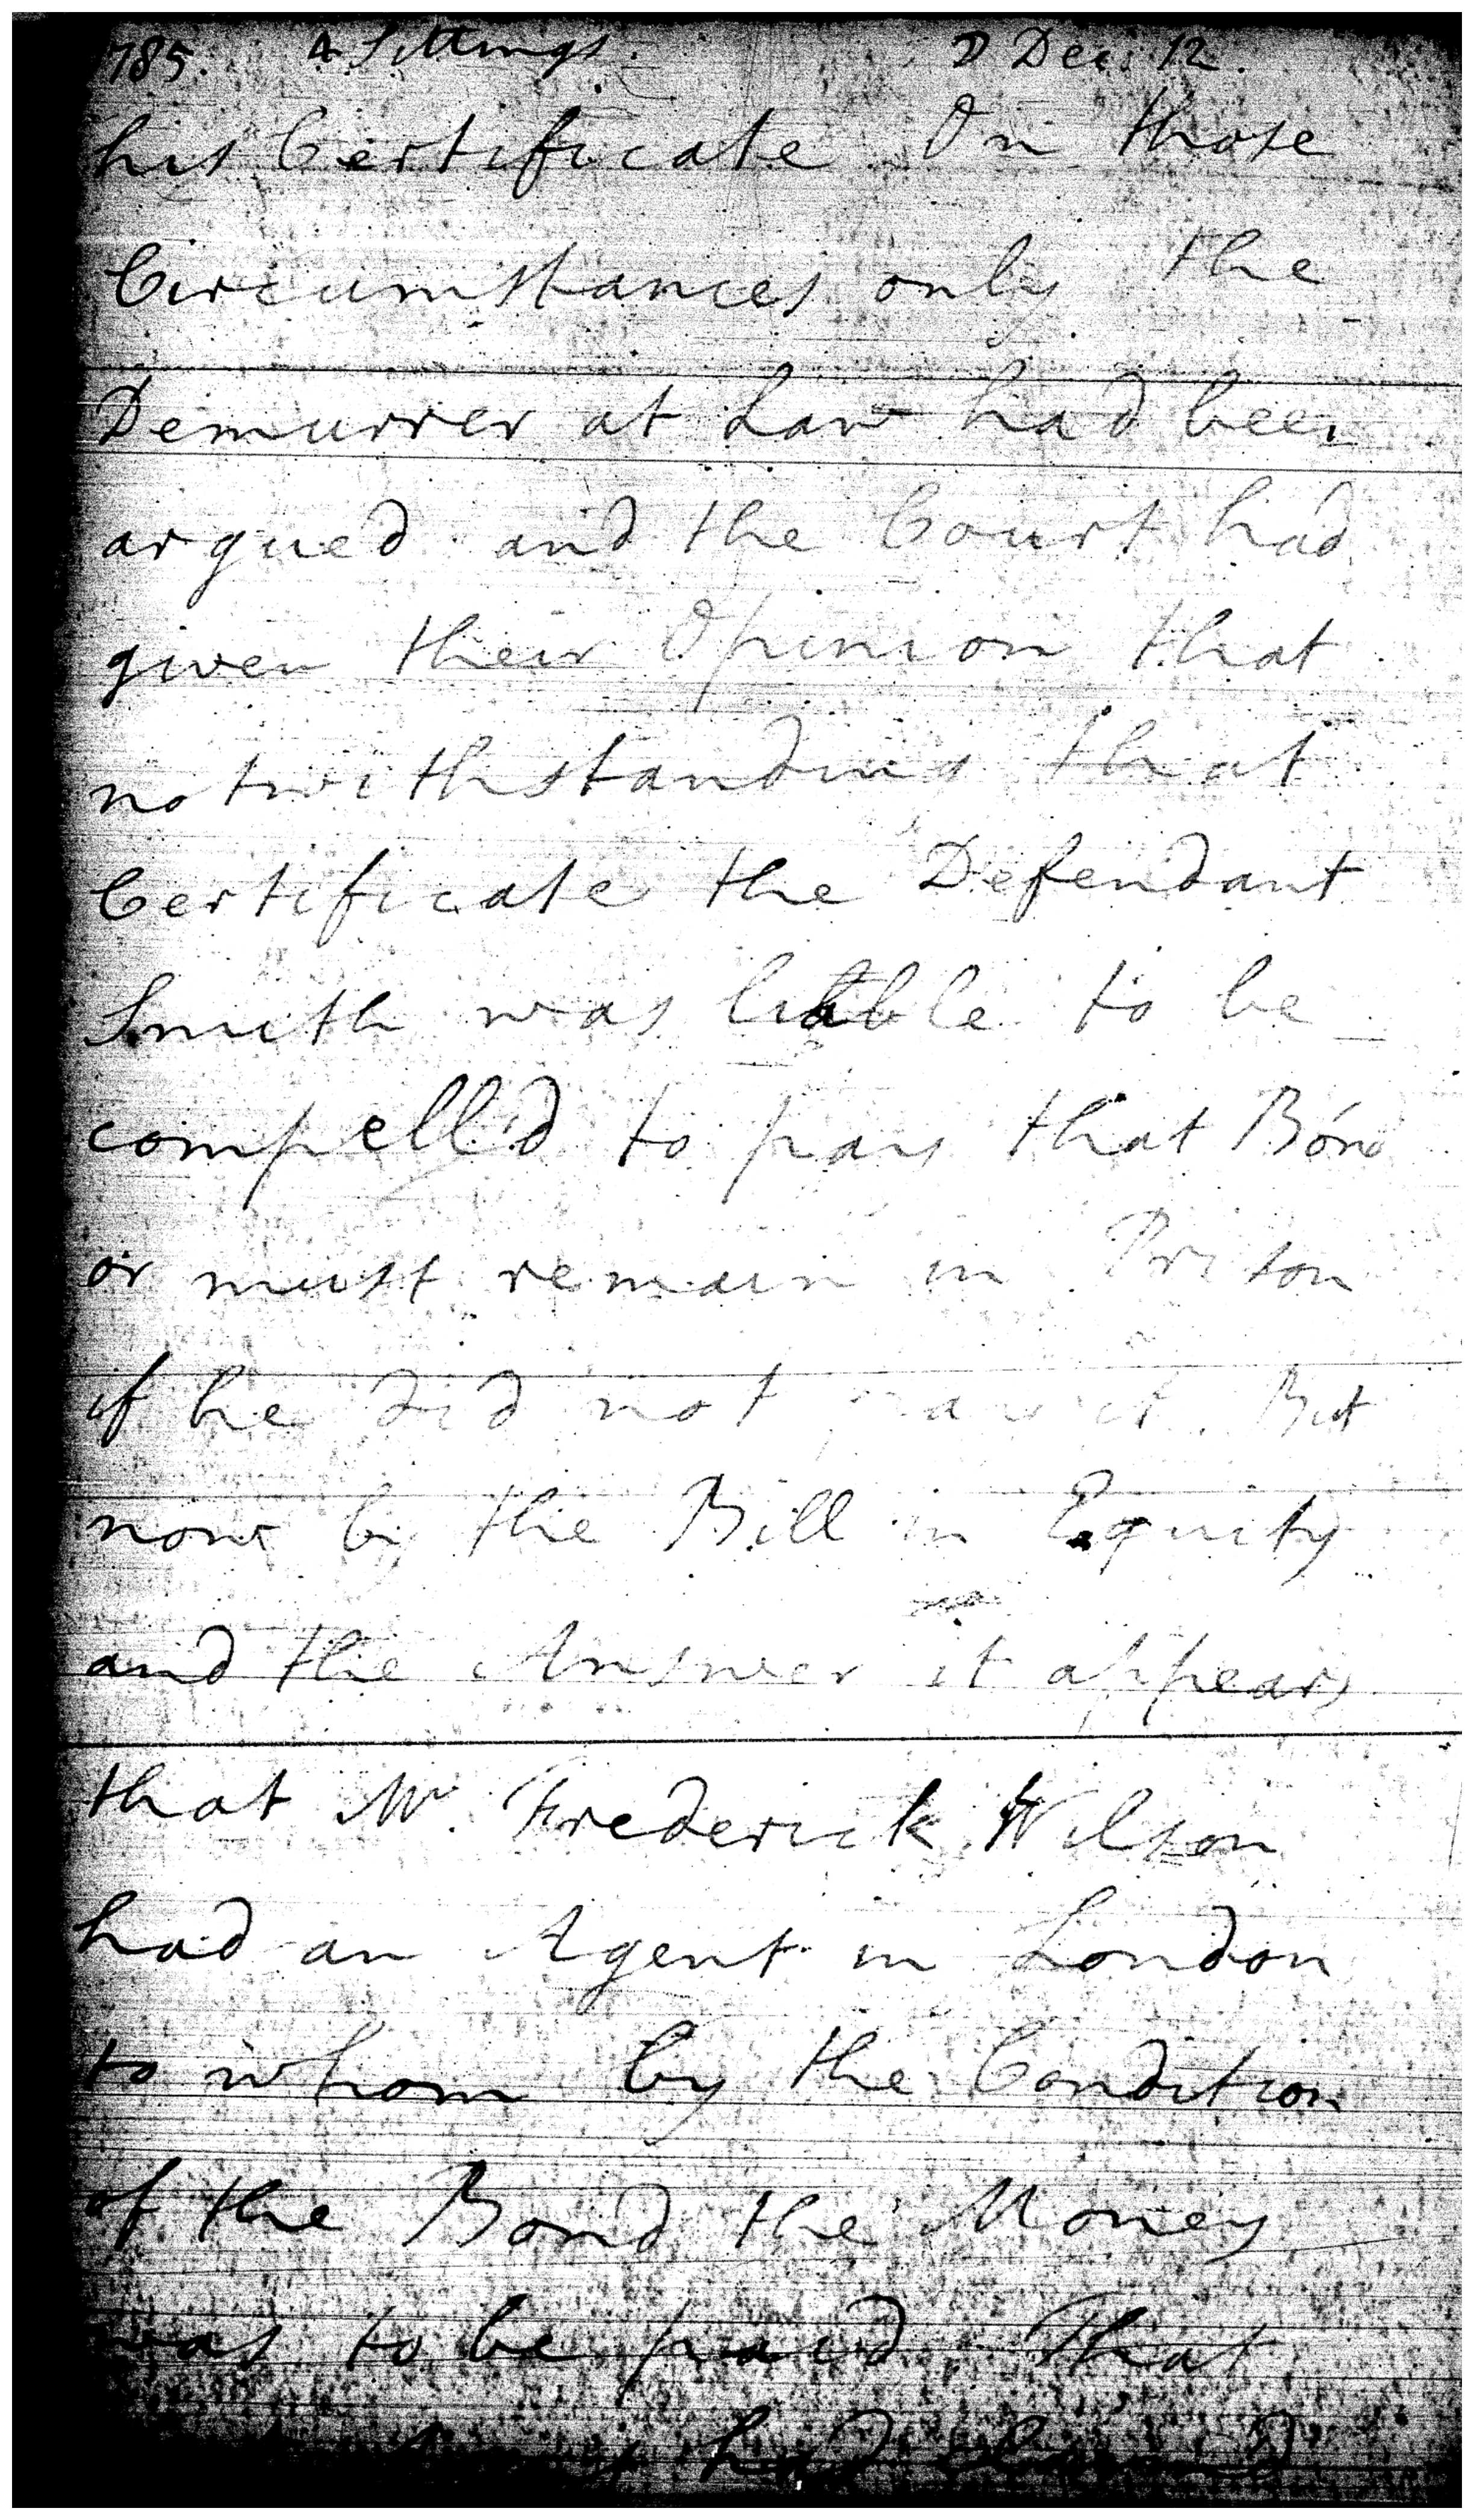 785. 4 Sittings. D Dec. 12.
his Certificate On those
Circumstances only the
Demurrer at Law had been
argued and the Court had
given their Opinion that
notwithstanding that
Certificate the Defendant
Smith was liable to be
compell'd to pay that Bond
or must remain in Prison
if he did not pay it. But
now by the Bill in Equity
and the Answer it appears
that Mr. Frederick Wilson
had an Agent in London
to whom by the Condition
of the Bond the Money
was to be paid That
had